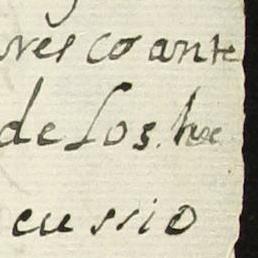 vescoante
de los he
cussio